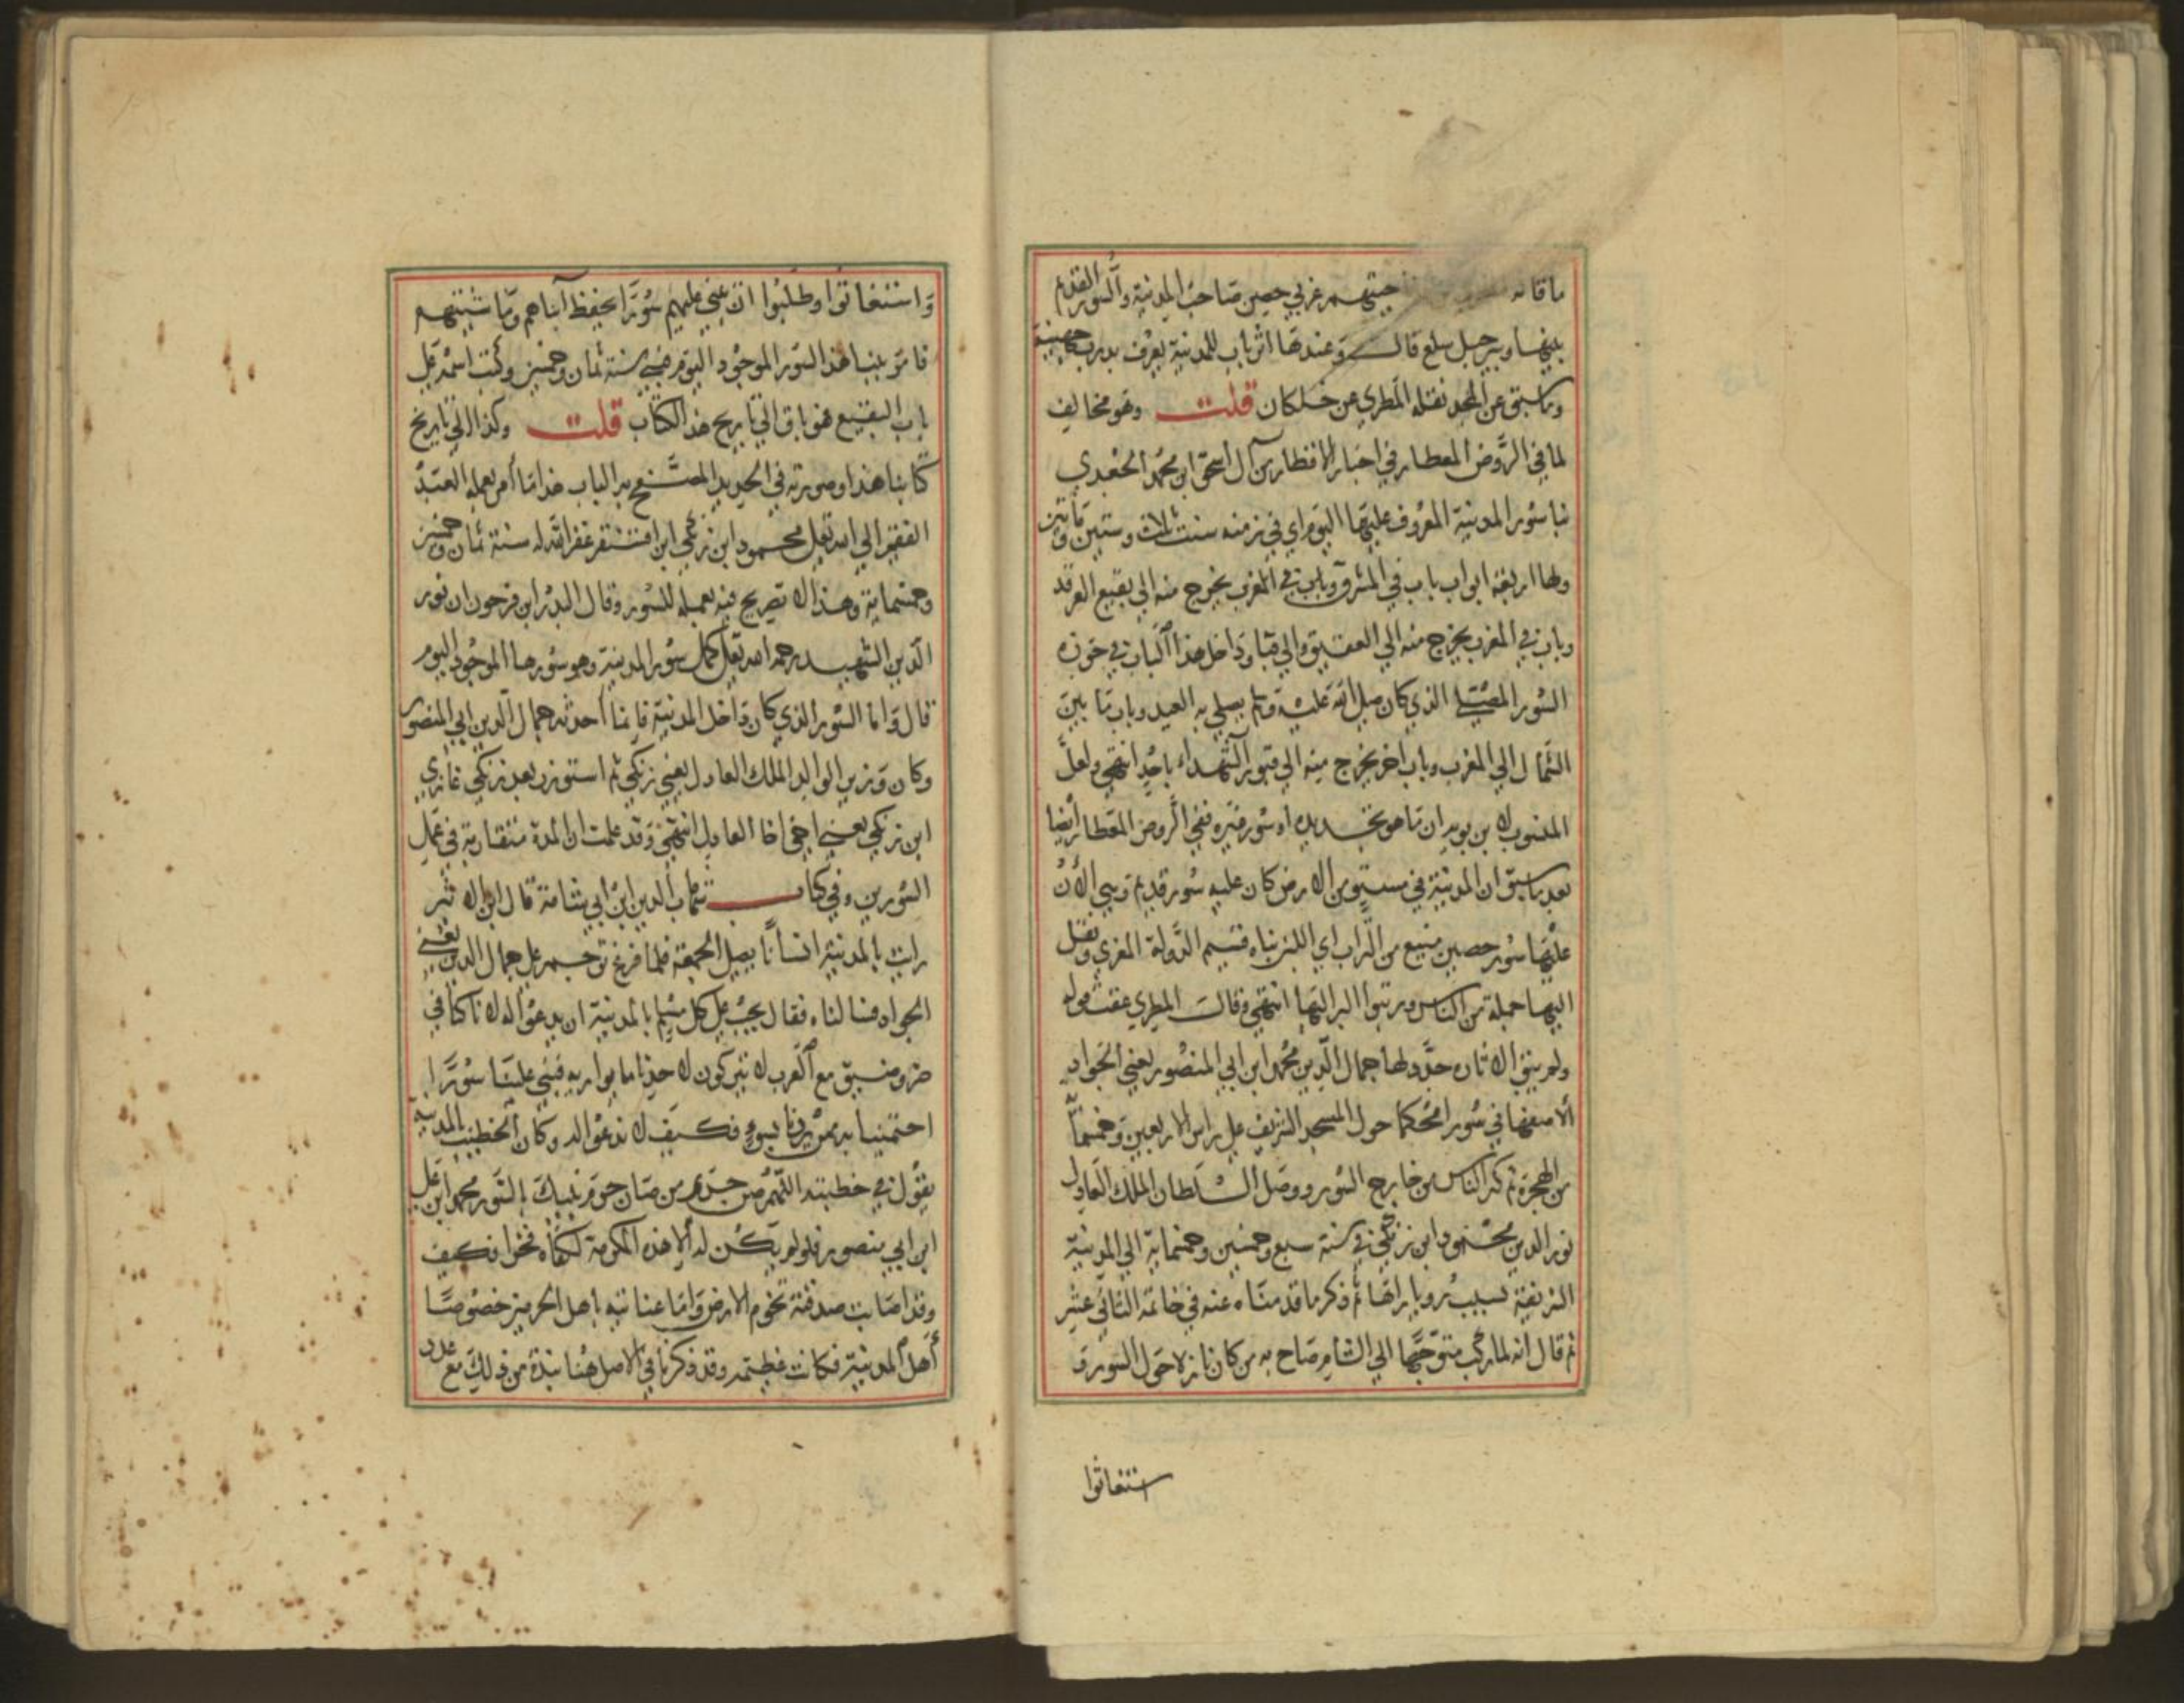 ما قاله جهتهم غربي حصن صاحب المدينة والسور القديم
بينها وبين جبل سلع قال وعندها اثر باب للمدينة يعرف بدرب جهينة
وما سبق عن المجد نقله المطري عن خلكان قلت وهو مخالف
لما في الروض المعطار في اخبار الاقطار من ال اسحق ابو محمد الجعدي
بنا سور المدينة المعروف عليها اليوم اي في زمنه سنت ثلاث وستين ومأتين
ولها اربعة ابواب باب في المشرق وباب في المغرب يخرج منه الي بقيع الغرقد
وباب في المغرب يخرج منه الي العقيق والي قبا وداخل هذا الباب في حوزه
السور المصلي الذي كان صلي الله عليه وسلم يصلي به العيد وباب ما بين
الشمال الي المغرب وباب اخر يخرج منه الي قبور الشهداء باحد انتهي ولعل
المنسوب لابن بويه ان ما هو تجديده او سور غيره ففي الروض المعطار ايضا
بعد ما سبق ان المدينة في مستوي من الارض كان عليه سور قديم وبني الان
عليها سور حصين منيع من التراب اي اللبن بناه قسيم الدولة المغزي ونقل
اليها جملة من الناس ورتبوا البر اليها انتهي وقال المطري عقب قوله
ولم يبق الا ثاره جدد لها جمال الدين محمد ابن ابي المنصور يعني الجواد
الاصفهاني سورا محكما حول المسجد الشريف علي راس الاربعين وخمسمائة
من الهجرة ثم كثر الناس من خارج السور ووصل السلطان الملك العادل
نور الدين محمود ابن زنكي في سنة سبع وخمسين وخمسماية الي المدينة
الشريفة بسبب رويا راها ثم ذكر ما قدمناه عنه في خاتمة الثاني عشر
ثم قال انه لما ركب متوجها الي الشام صاح به من كان نازلا حول السور و
استغاثوا
واستغاثوا وطلبوا ان يبني عليهم سورا يحفظ ابناهم وماشيتهم
فامر ببنا هذا السور الموجود اليوم فبني سنة ثمان وخمسين وكتب اسمه علي
باب البقيع فهو باق الي تاريخ هذا الكتاب قلت وكذا الي تاريخ
كتابنا هذا وصورته في الحديد المصفح به الباب هذا ما امر بعمله العبد
الفقير الي الله تعلي محمود ابن زنكي ابن اقسنقر غفر الله له سنة ثمان وخمسين
وخمسماية وهذا لا تصريح فيه بعمله للسور وقال البدر ابن فرحون ان نور
الدين الشهيد رحمه الله تعلي كمل سور المدينة وهو سورها الموجود اليوم
قال واما السور الذي كان داخل المدينة فانما احدثه جمال الدين ابي المنصور
وكان وزير الوالد الملك العادل يعني زنكي ثم استوزر بعد زنكي غازي
ابن زنكي يعني اخي اخا العادل انتهي وقد علمت ان المدة متقاربة في عمل
السورين وفي كتاب شهاب الدين ابن ابي شامة قال ابن الاثير
رايت بالمدينة انسانا يصلي الجمعة فلما فرغ ترحم علي جمال الدين يعني
الجواد فسالناه فقال يجب علي كل مسلم بالمدينة ان يدعو له لاننا كنا في
ضر وضيق مع العرب لا يتركون لاحدنا ما يواريه فبني علينا سورا
احتمينا به ممن يريدنا بسوء فكيف لا ندعو اله وكان الخطيب بالمدينة
يقول في خطبته اللهم صن حريم من صان حرم نبيك بالسور محمد ابن علي
ابن ابي منصور فلو لم يكن له الا هذه المكرمة لكفاه فخرا فكيف
وقد اصابت صدقته تخوم الارض واما عنايته باهل الحرمين خصوصا
أهل المدينة فكانت عظيمة وقد ذكرنا في الاصل هنا نبذة من ذلك مع عدل